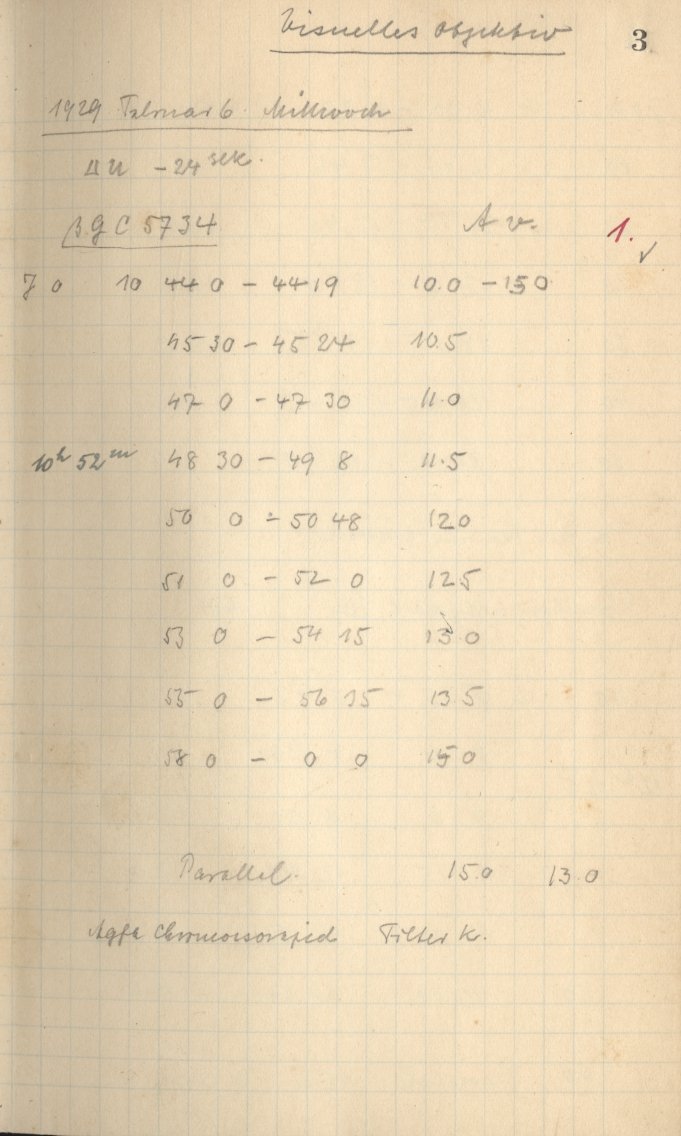 Visuelles Objektiv 3
1929 Februar 6. Mittwoch
ΔU - 24 sek.
β.G C 5734 A v. 1. ✓
7 0 10 44 0 - 44 19 10.0 - 15 0
45 30 - 45 24 10.5
47 0 - 47 30 11.0
10h 52m 48 30 - 49 8 11.5
50 0 - 50 48 12 0
51 0 - 52 0 12 5
53 0 - 54 15 13 0
55 0 - 56 35 13 5
58 0 - 0 0 15 0
Parallel. 15.0 13.0
Agfa Chromoisorapid Filter K.